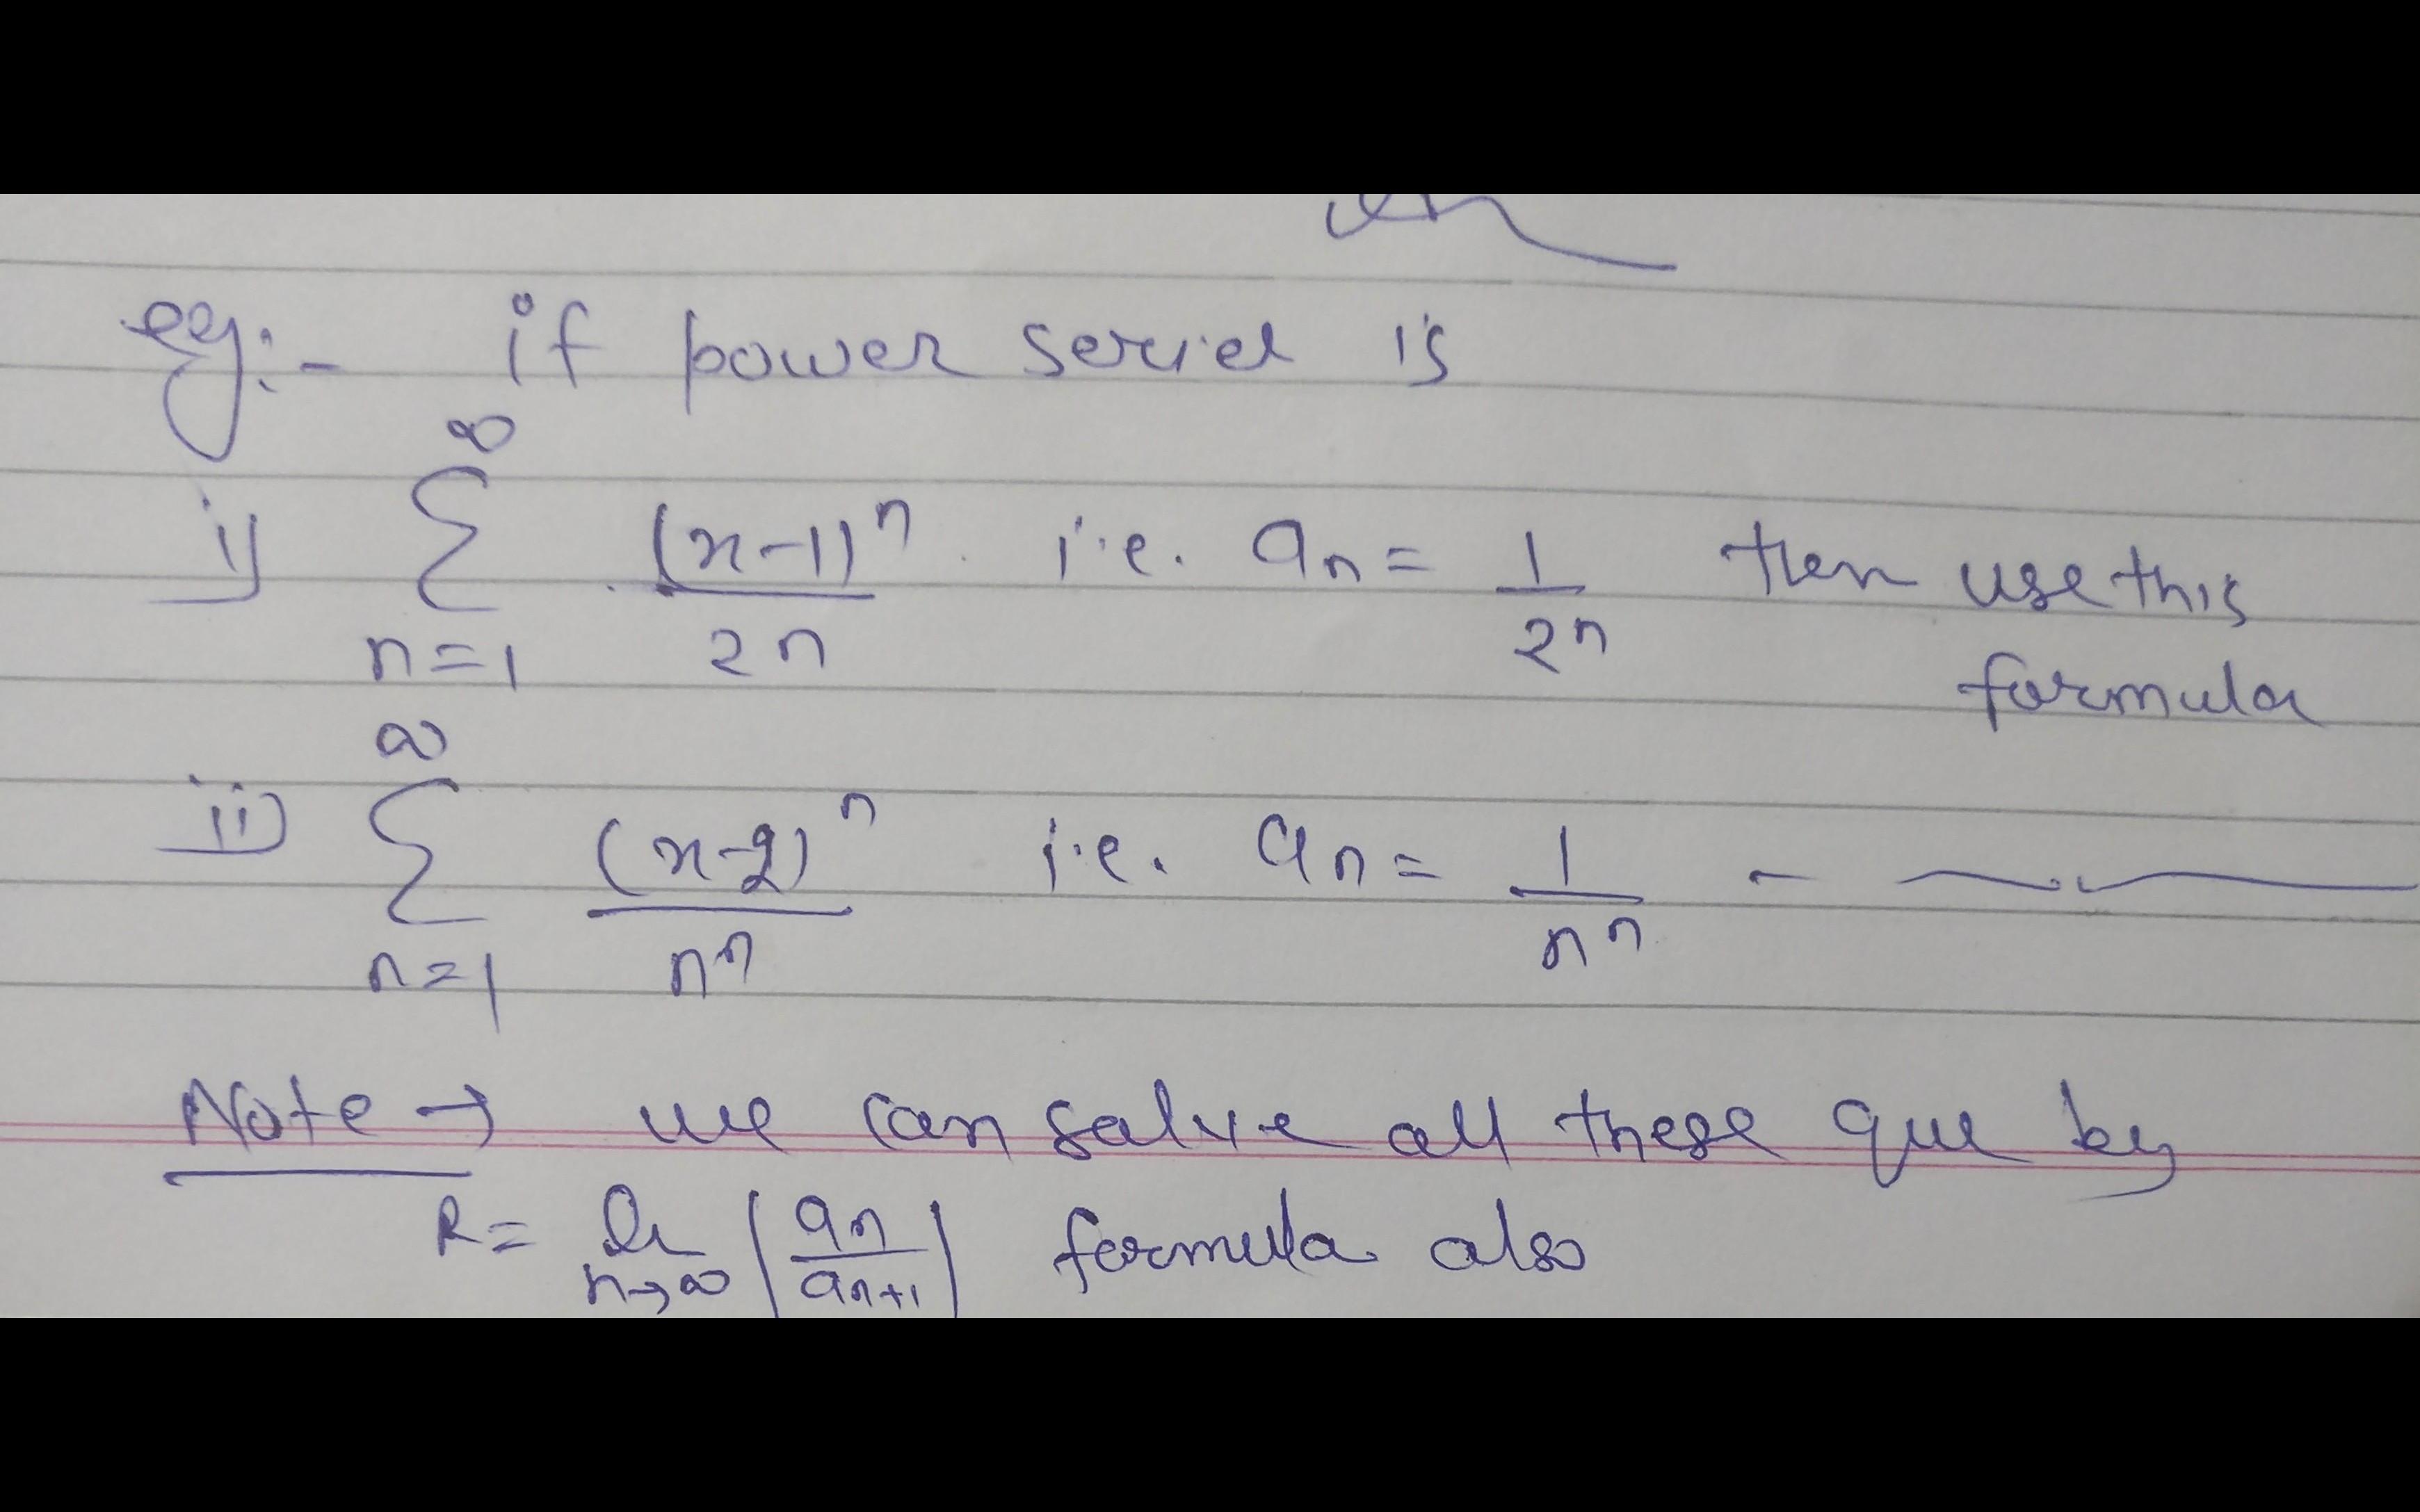 eg:- if power series is
i) ∞ Σ n=1 (x-1)ⁿ / 2n i.e. an = 1 / 2ⁿ then use this
formula
ii) ∞ Σ n=1 (x-2)ⁿ / nⁿ i.e. an = 1 / nⁿ -
Note → we can solve all these que by
R = lim n→∞ |an / an+1| formula also